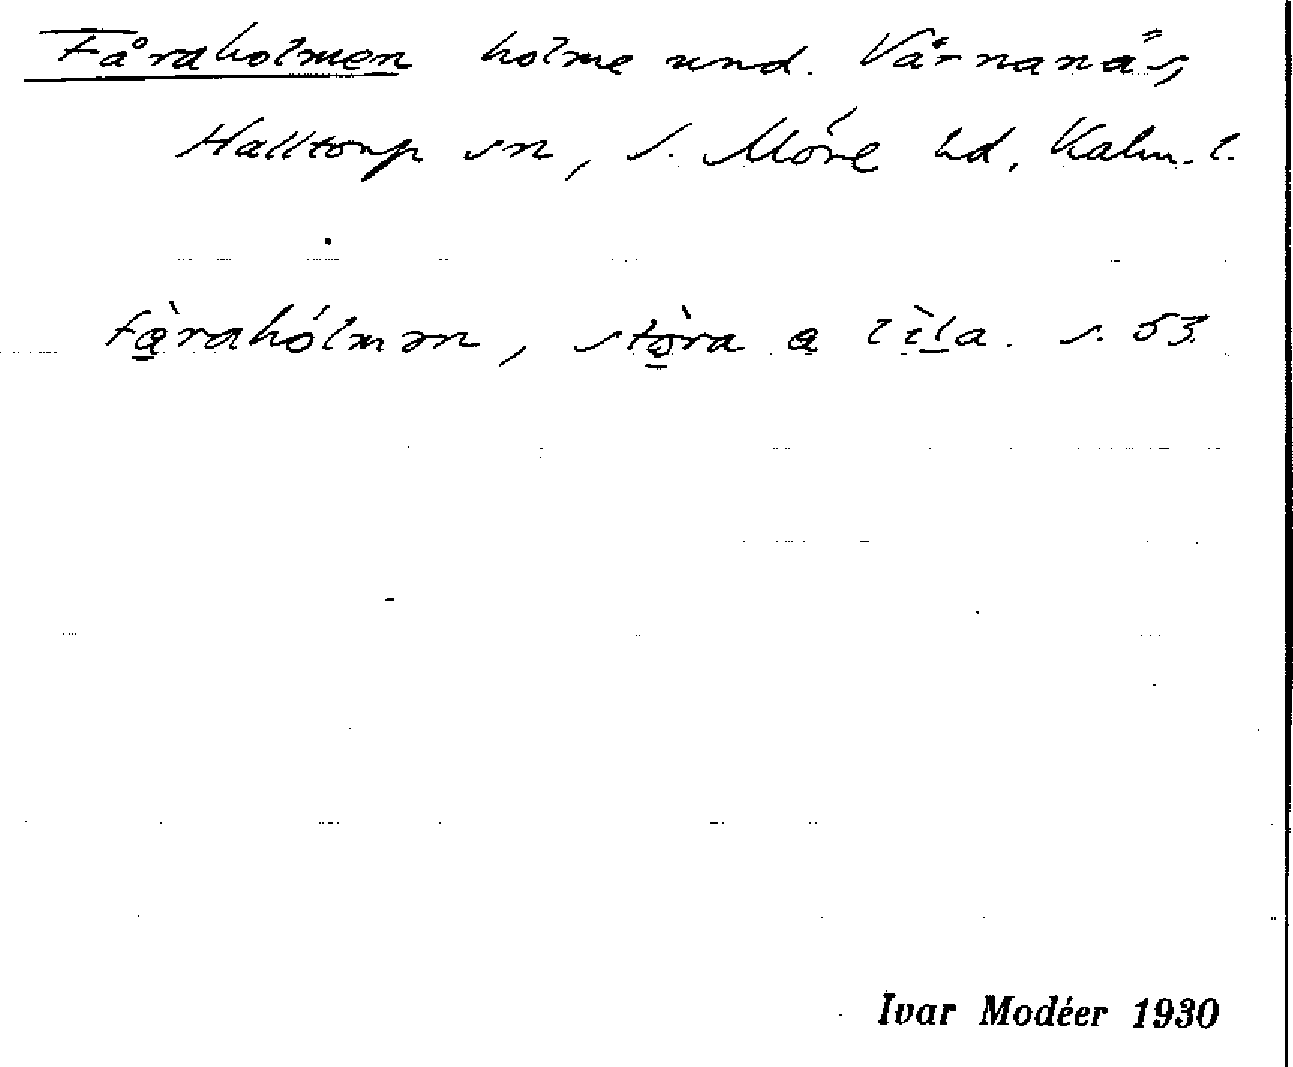 Fåraholmen holme und. Värnanäs,
Halltorp sn, S. Möre hd, Kalm. l.
fà̱rahólmən, stò̱ra a lìḻa. s. 53.
Ivar Modéer 1930